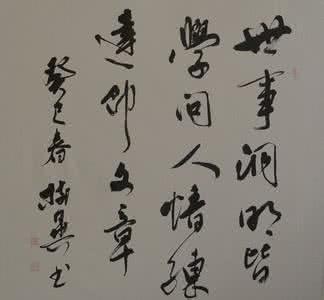 世事洞明皆
學问人情練
達即文章
癸巳春 書